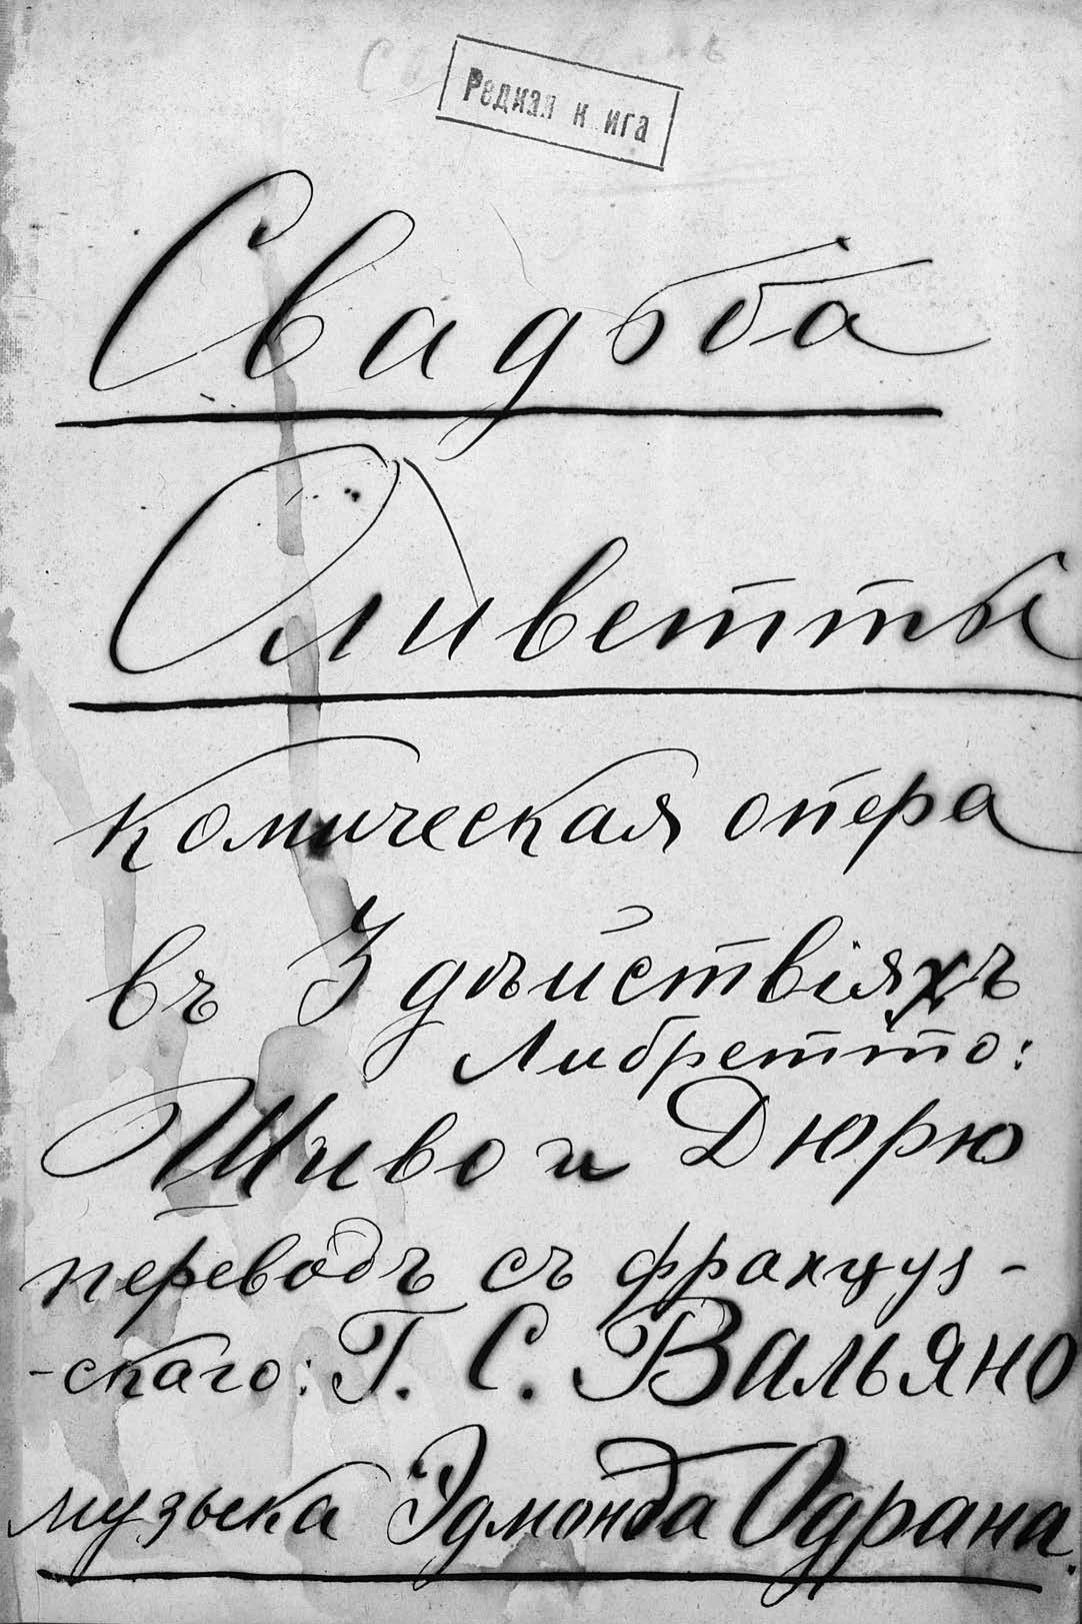 Редкая книга
Свадьба
Оливетты
комическая опера
въ 3 дѣйствіяхъ
Либретто:
Шиво и Дюрю
переводъ съ француз-
-скаго: Г. С. Вальяно
музыка Эдмонда Одрана.